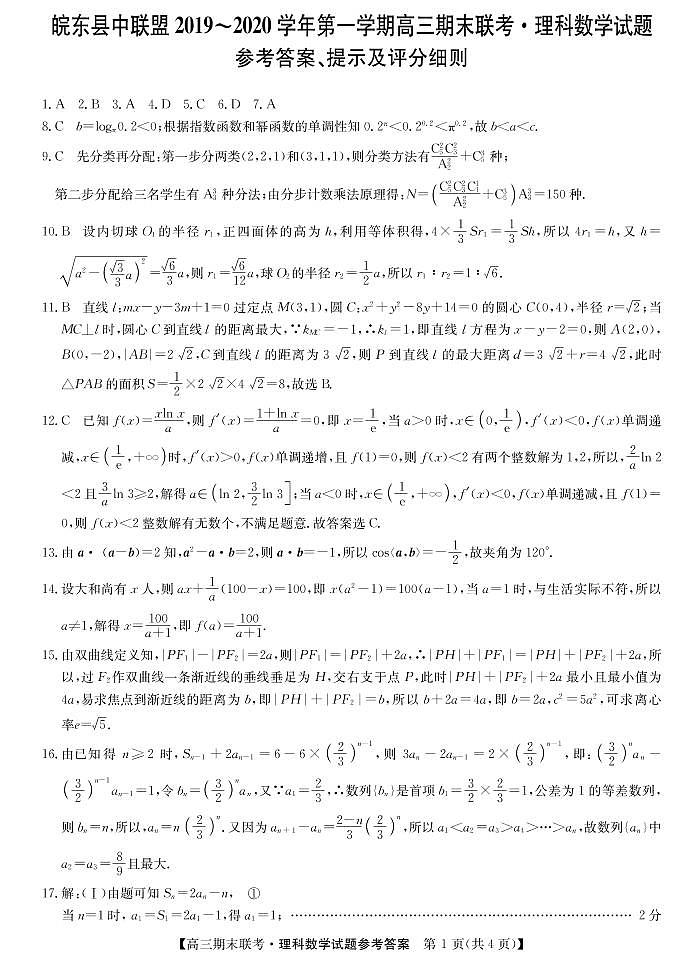 皖东县中联盟 2019～2020 学年第一学期高三期末联考·理科数学试题
参考答案、提示及评分细则
1. A 2. B 3. A 4. D 5. C 6. D 7. A
8. C b=logπ0.2<0;根据指数函数和幂函数的单调性知 0.2^π<0.2^0.2<π^0.2,故 b<a<c.
9. C 先分类再分配:第一步分两类(2,2,1)和(3,1,1),则分类方法有 C₅²C₃²/A₂²+C₅³ 种;
第二步分配给三名学生有 A₃³ 种分法;由分步计数乘法原理得:N=(C₅²C₃²C₁¹/A₂²+C₅³)A₃³=150 种.
10. B 设内切球 O₁的半径 r₁,正四面体的高为 h,利用等体积得,4×1/3 Sr₁=1/3 Sh,所以 4r₁=h,又 h=
√(a²-(√3/3 a)²)=√6/3 a,则 r₁=√6/12 a,球 O₂的半径 r₂=1/2 a,所以 r₁∶r₂=1∶√6.
11. B 直线 l:mx-y-3m+1=0 过定点 M(3,1),圆 C:x²+y²-8y+14=0 的圆心 C(0,4),半径 r=√2;当
MC⊥l 时,圆心 C 到直线 l 的距离最大,∵k_MC=-1,∴k_l=1,即直线 l 方程为 x-y-2=0,则 A(2,0),
B(0,-2),|AB|=2√2,C 到直线 l 的距离为 3√2,则 P 到直线 l 的最大距离 d=3√2+r=4√2,此时
△PAB 的面积 S=1/2×2√2×4√2=8,故选 B.
12. C 已知 f(x)=xln x/a,则 f′(x)=(1+ln x)/a=0,即 x=1/e,当 a>0 时,x∈(0,1/e),f′(x)<0,f(x)单调递
减,x∈(1/e,+∞)时,f′(x)>0,f(x)单调递增,且 f(1)=0,则 f(x)<2 有两个整数解为 1,2,所以,2/a ln 2
<2 且 3/a ln 3≥2,解得 a∈(ln 2,3/2 ln 3];当 a<0 时,x∈(1/e,+∞),f′(x)<0,f(x)单调递减,且 f(1)=
0,则 f(x)<2 整数解有无数个,不满足题意.故答案选 C.
13. 由 a·(a-b)=2 知,a²-a·b=2,则 a·b=-1,所以 cos⟨a,b⟩=-1/2,故夹角为 120°.
14. 设大和尚有 x 人,则 ax+1/a(100-x)=100,即 x(a²-1)=100(a-1),当 a=1 时,与生活实际不符,所以
a≠1,解得 x=100/(a+1),即 f(a)=100/(a+1).
15. 由双曲线定义知,|PF₁|-|PF₂|=2a,则|PF₁|=|PF₂|+2a,∴|PH|+|PF₁|=|PH|+|PF₂|+2a,所
以,过 F₂作双曲线一条渐近线的垂线垂足为 H,交右支于点 P,此时|PH|+|PF₂|+2a 最小且最小值为
4a,易求焦点到渐近线的距离为 b,即|PH|+|PF₂|=b,所以 b+2a=4a,即 b=2a,c²=5a²,可求离心
率e=√5.
16. 由已知得 n≥2 时,Sₙ₋₁+2aₙ₋₁=6-6×(2/3)ⁿ⁻¹,则 3aₙ-2aₙ₋₁=2×(2/3)ⁿ⁻¹,即:(3/2)ⁿaₙ-
(3/2)ⁿ⁻¹aₙ₋₁=1,令 bₙ=(3/2)ⁿaₙ,又∵a₁=2/3,∴数列{bₙ}是首项 b₁=3/2×2/3=1,公差为 1 的等差数列,
则 bₙ=n,所以,aₙ=n(2/3)ⁿ.又因为 aₙ₊₁-aₙ=(2-n)/3(2/3)ⁿ,所以 a₁<a₂=a₃>a₄>…>aₙ,故数列{aₙ}中
a₂=a₃=8/9且最大.
17. 解:(Ⅰ)由题可知 Sₙ=2aₙ-n, ①
当 n=1 时,a₁=S₁=2a₁-1,得 a₁=1; ………………………………………… 2 分
【高三期末联考·理科数学试题参考答案 第 1 页(共 4 页)】